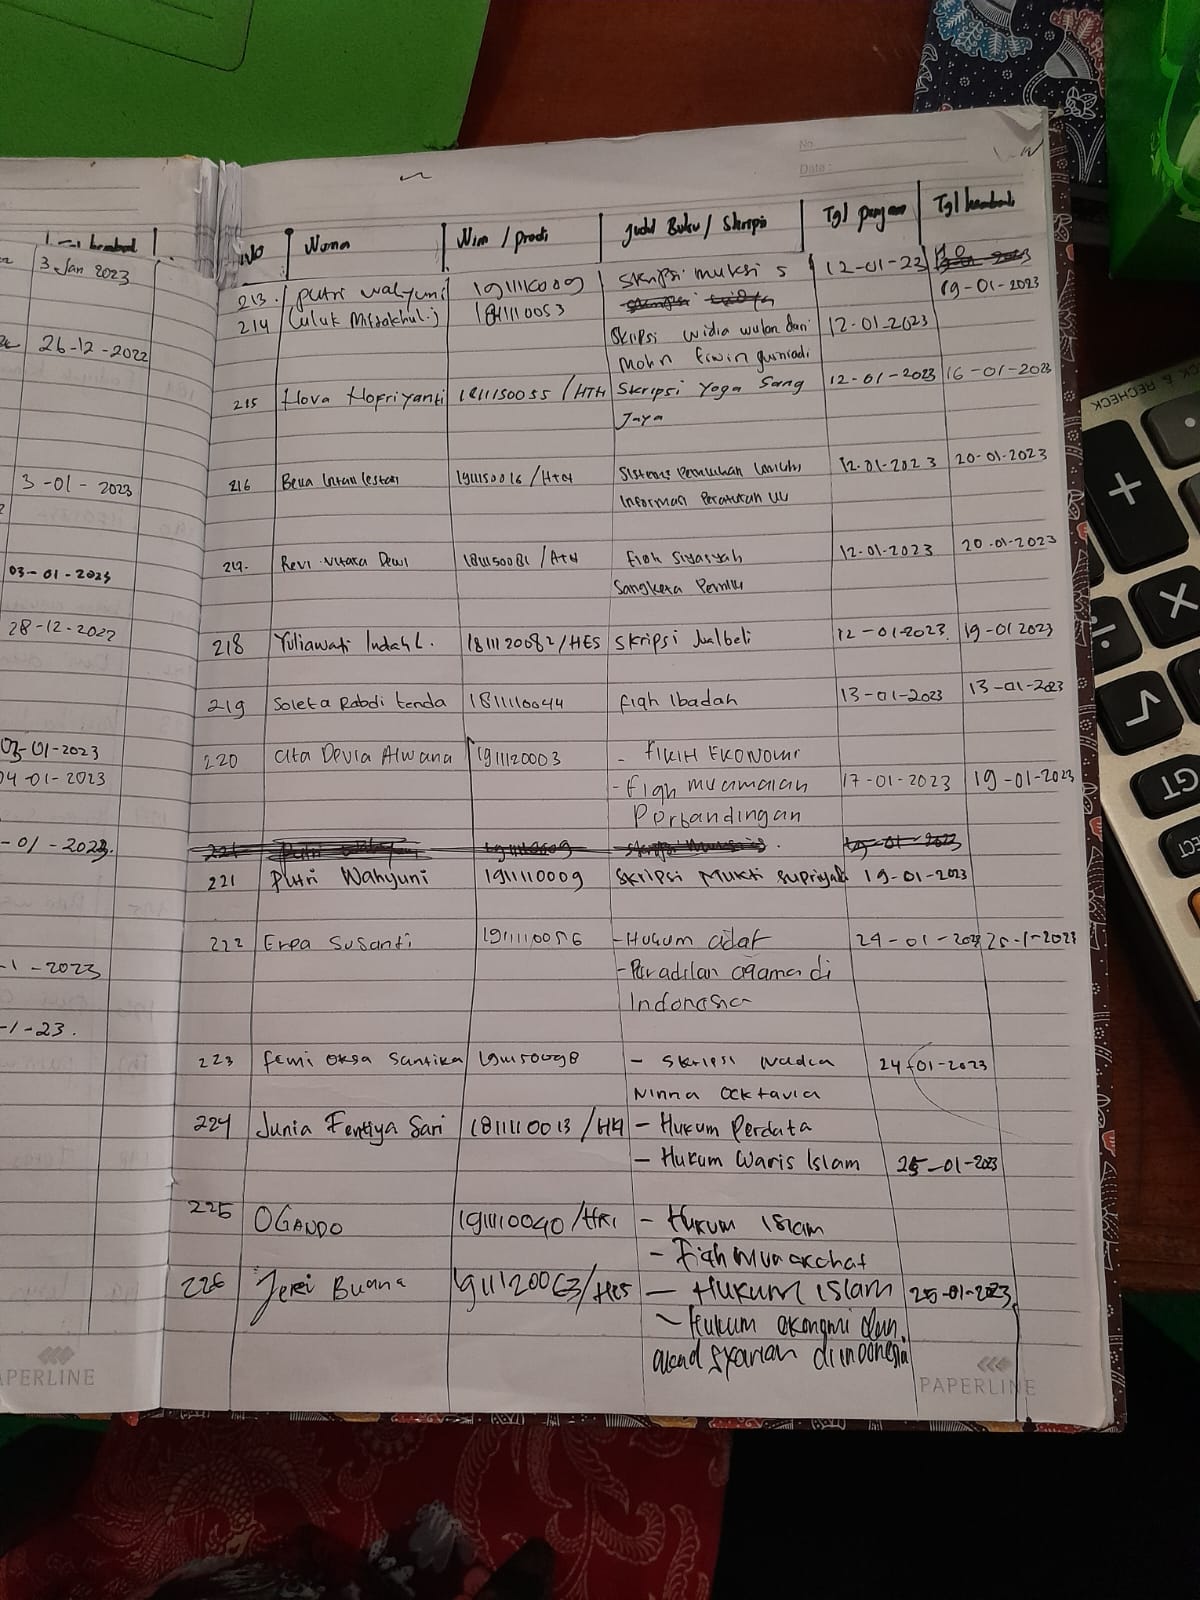 No
Date :
No Nama Nim / prodi Judul Buku / Skripsi Tgl pinjam Tgl kembali
3 Jan 2023
213. putri wahyuni 1911110009 Skripsi muksi s 12-01-23
19-01-2023
214 (uluk Miftakhul.) 1811110053 Skripsi widia wulan dari 12-01-2023
26-12-2022
Mohn Erwin gunriadi
215 Hova Hofriyanti 1811150055 /HTN Skripsi Yoga Sang 12-01-2023 16-01-2023
Jaya
3-01-2023
216 Bella Intan lestari 1911150016 /HTN Sistem Pemilihan Umum 12-01-2023 20-01-2023
Informasi Peraturan UU
217. Revi Dewi 1811150081 /HTN Fiqh Siyasyah 12-01-2023 20-01-2023
03-01-2023
Sangketa Pemilu
28-12-2022
218 Yuliawati Indah L. 1811120082/HES Skripsi Jualbeli 12-01-2023. 19-01 2023
219 Soleta Rabdi tenda 1811110044 Fiqh Ibadah 13-01-2023 13-01-2023
03-01-2023
220 Cita Devia Alwana 1911120003 - FIKIH EKONOMI
04-01-2023
- Fiqh muamalah 17-01-2023 19-01-2023
Perbandingan
-01-2023.
221 Putri Wahyuni 1911110009 Skripsi Mukti Supriyadi 19-01-2023
222 Erpa Susanti 1911110056 - Hukum adat 24-01-2023 25-1-2023
-1-2023
- Peradilan agama di
Indonesia
-1-23.
223 femi oksa Santika 1911150098 - Skripsi Nadia 24-01-2023
Ninna Ocktavia
224 Junia Fentiya Sari 1811110013 /HKI - Hukum Perdata
- Hukum Waris Islam 25-01-2023
225 OGANDO 1911110040/HKI - Hukum Islam
- Fiqh Munakchat
226 Jeki Buana 1911120063/HES - Hukum islam 25-01-2023
- Hukum ekonomi dan
akad syariah di indonesia
PAPERLINE
PAPERLINE